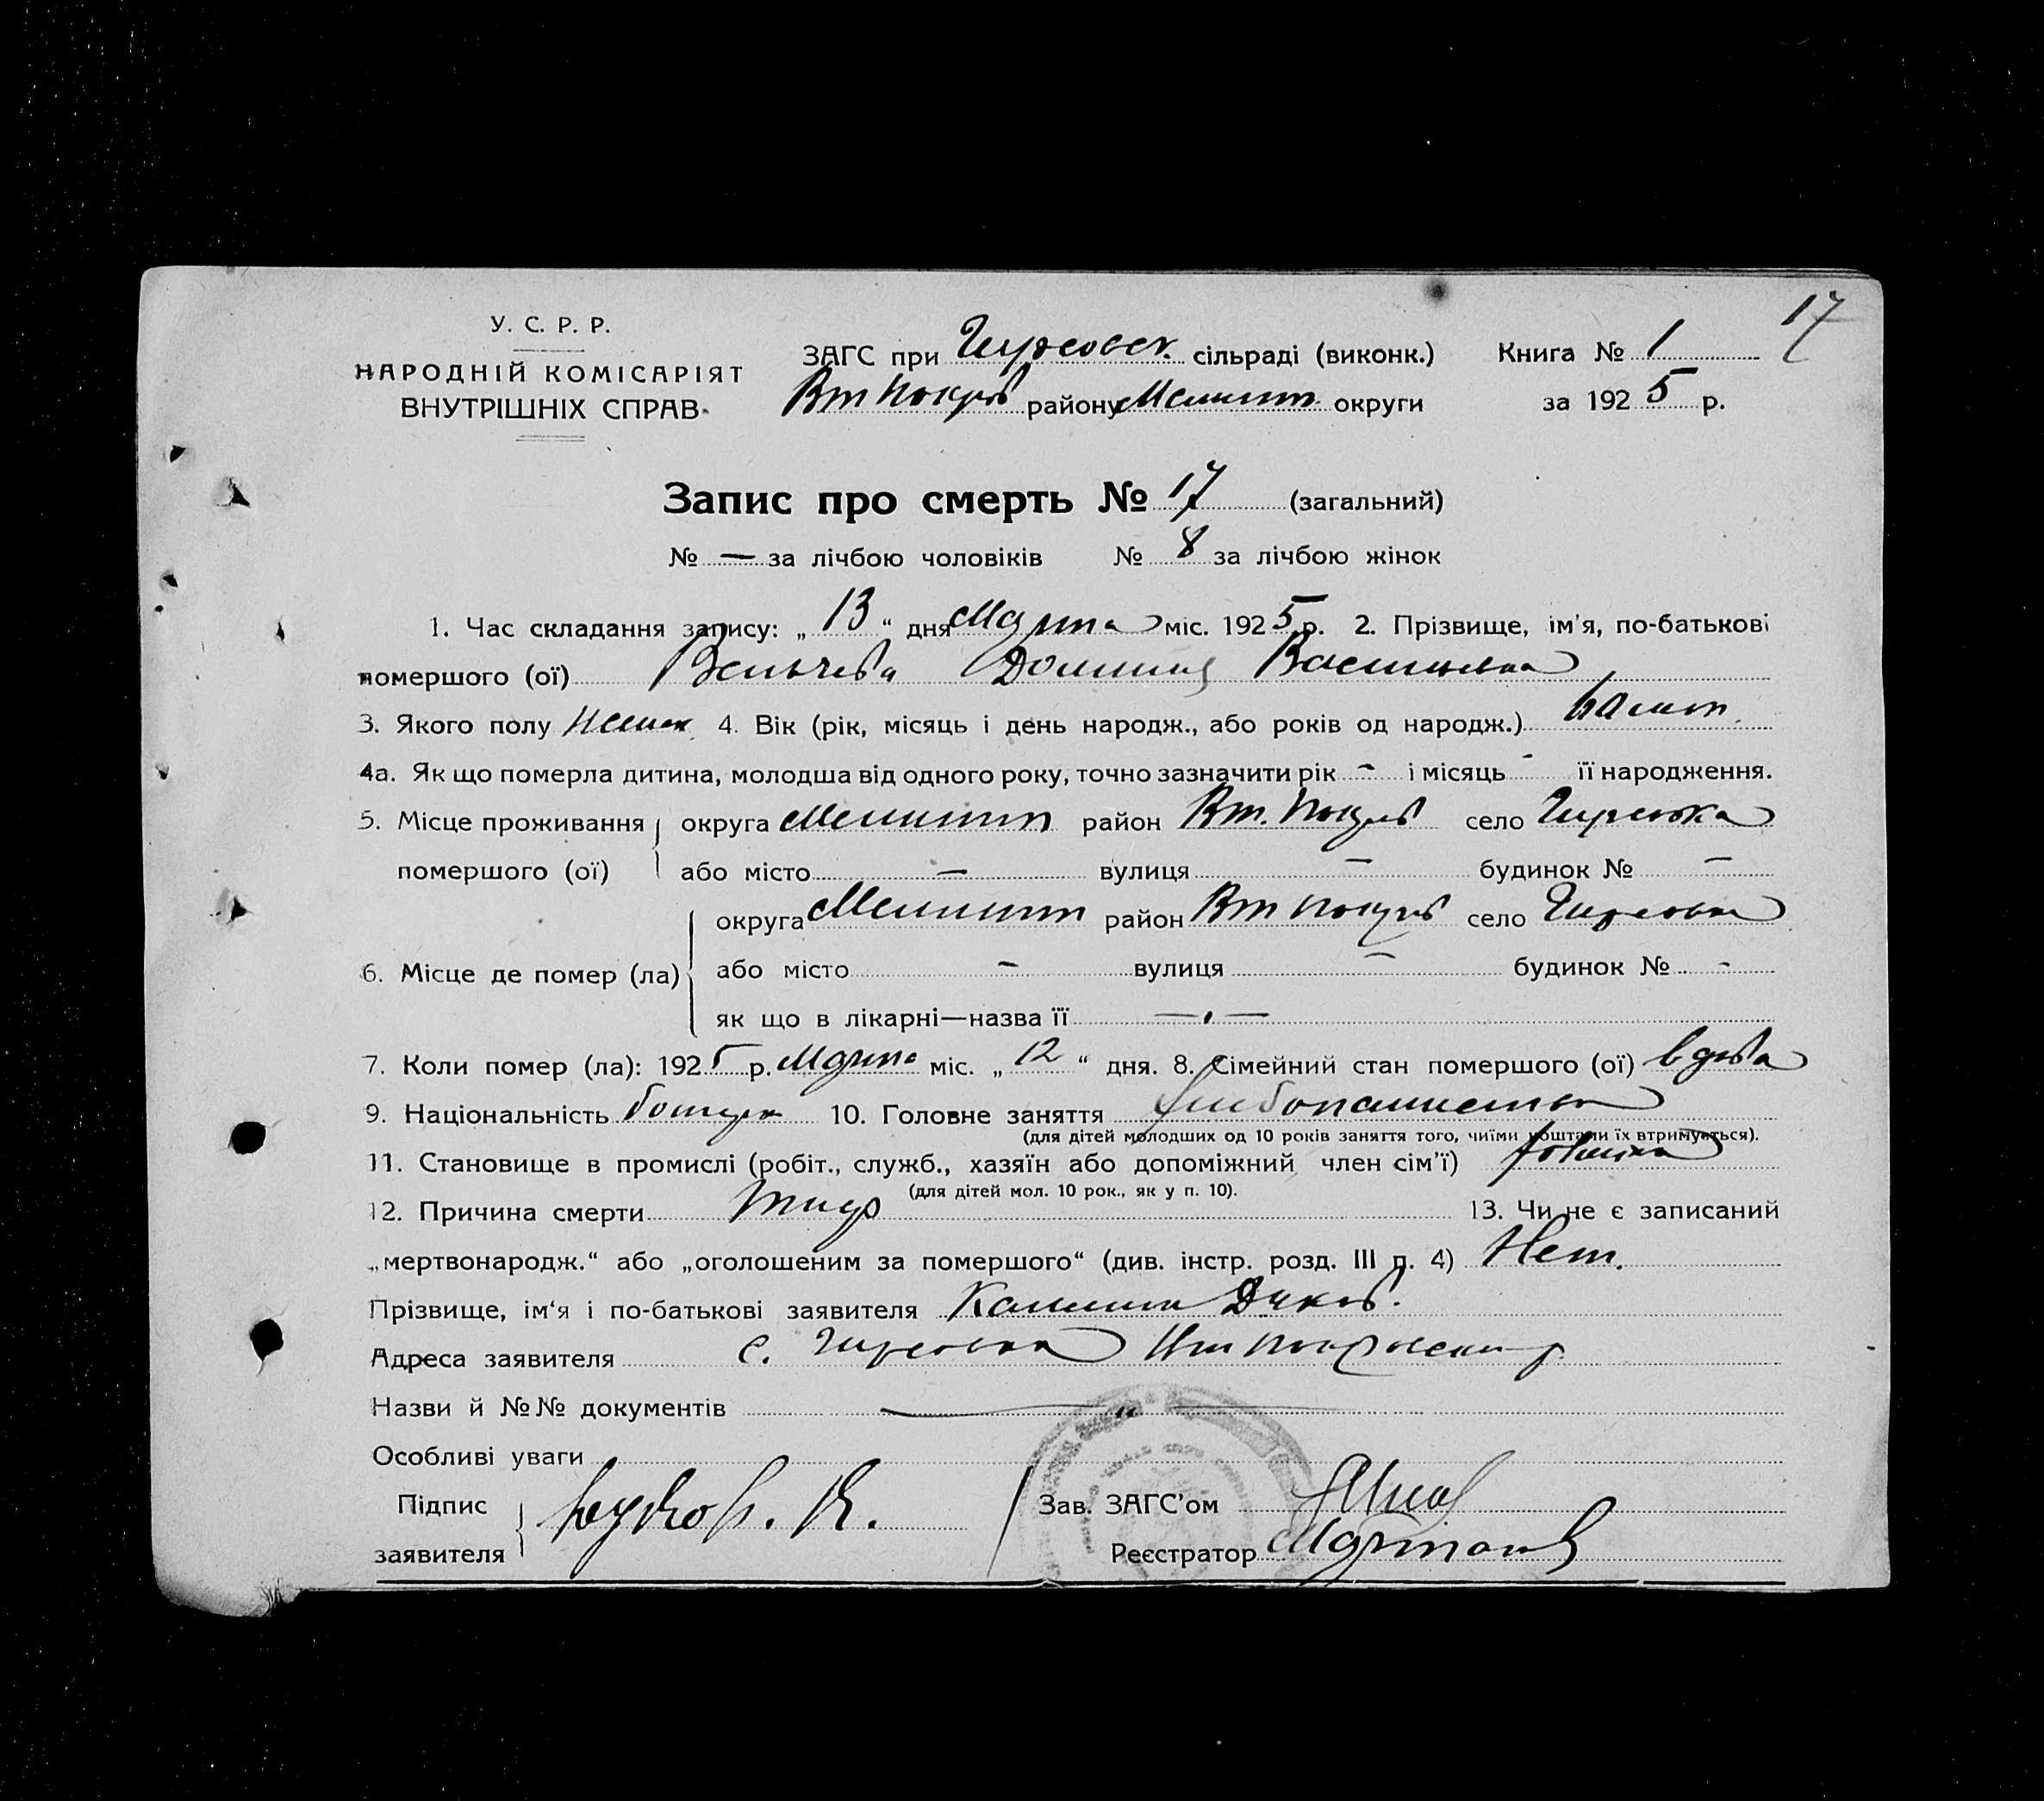 17
У. С. Р. Р.
НАРОДНІЙ КОМІСАРІЯТ
ВНУТРІШНІХ СПРАВ
ЗАГС при Гирсовск. сільраді (виконк.) Книга № 1
Вт Покров району Мелитоп округи за 1925 р.
Запис про смерть № 17 (загальний)
№ — за лічбою чоловіків № 8 за лічбою жінок
1. Час складання запису: „ 13 “ дня Марта міс. 1925 р. 2. Прізвище, ім'я, по-батькові
помершого (ої) Вельчева Домникия Васильевна
3. Якого полу Женск 4. Вік (рік, місяць і день народж., або років од народж.)
4а. Як що померла дитина, молодша від одного року, точно зазначити рік - і місяць - її народження.
5. Місце проживання округа Мелитоп район Вт. Покров село Гирсовка
помершого (ої) або місто — вулиця — будинок № —
округа Мелитоп район Вт Покров село Гирсовка
6. Місце де помер (ла) або місто - вулиця — будинок № -
як що в лікарні—назва її —.—
7. Коли помер (ла): 1925 р. Марта міс. „ 12 “ дня. 8. Сімейний стан помершого (ої) вдова
9. Національність болгарк 10. Головне заняття хлебопашество
(для дітей молодших од 10 років заняття того, чиїми коштами їх втримується).
11. Становище в промислі (робіт., служб., хазяїн або допоміжний член сім'ї) хозяйка
(для дітей мол. 10 рок., як у п. 10).
12. Причина смерти Тиф 13. Чи не є записаний
„мертвонародж.“ або „оголошеним за помершого“ (див. інстр. розд. III п. 4) Нет.
Прізвище, ім'я і по-батькові заявителя
Адреса заявителя с. Гирсовка
Назви й №№ документів — „ —
Особливі уваги
Підпис
заявителя
Зав. ЗАГС'ом
Реєстратор